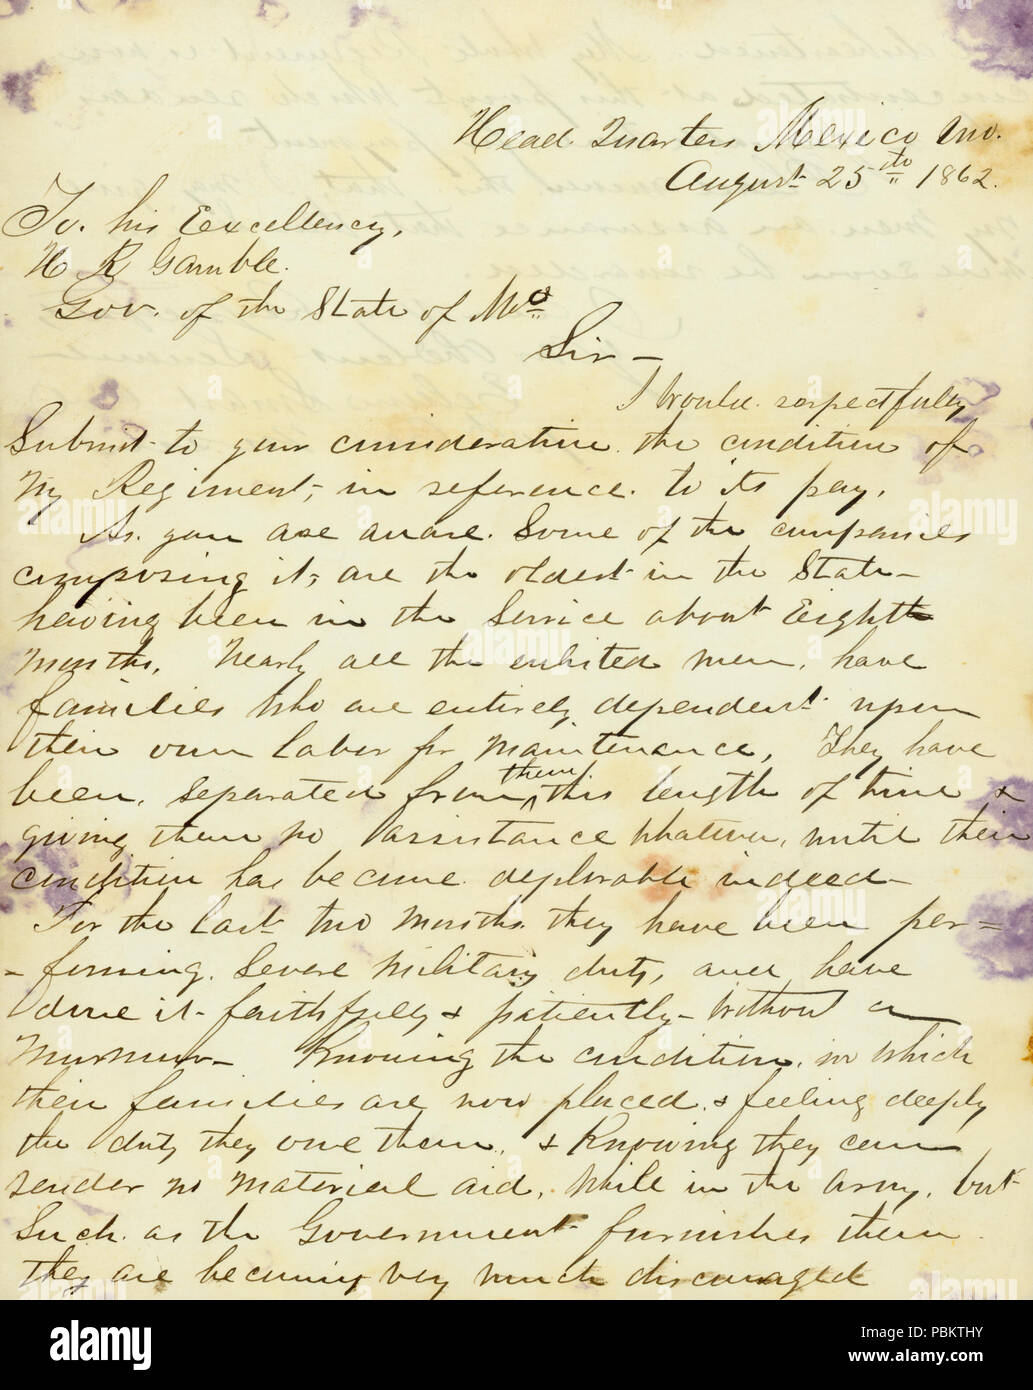 Head Quarters Mexico Mo.
August 25th 1862.
To. his Excellency,
H R Gamble.
Gov. of the State of Mo
Sir —
I would respectfully
Submit to your consideration the condition of
my Regiment, in reference to its pay.
As you are aware Some of the companies
composing it, are the oldest in the State —
having been in the Service about Eight
months. Nearly all the enlisted men, have
families who are entirely dependent upon
their own labor for maintenance, They have
been separated from them this length of time &
giving them no assistance whatever, until their
condition has become deplorable indeed —
For the last two months they have been per=
= forming Severe military duty, and have
done it faithfully & patiently — without a
murmur — Knowing the condition in which
their families are now placed & feeling deeply
the duty they owe them, & Knowing they can
render no material aid, while in the army, but
Such as the Government furnishes them
they are becoming very much discouraged
alamy
PBKTHY
www.alamy.com